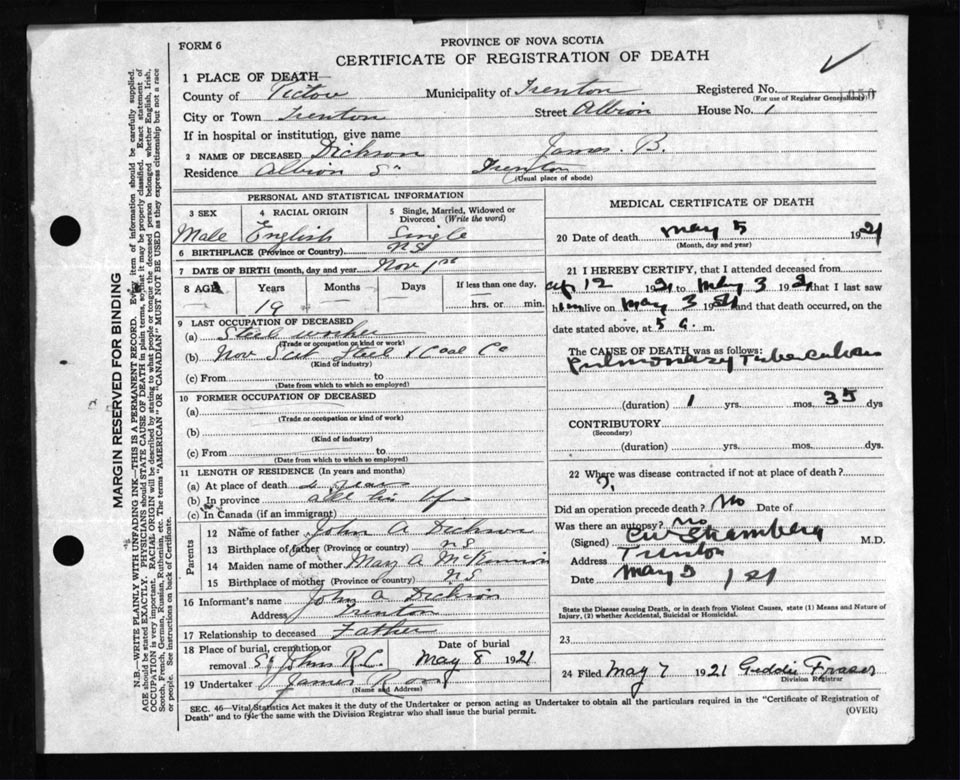 FORM 6
PROVINCE OF NOVA SCOTIA
CERTIFICATE OF REGISTRATION OF DEATH
1 PLACE OF DEATH—
County of Pictou Municipality of Trenton Registered No.
(For use of Registrar General only)
City or Town Trenton Street Albion House No. 1
If in hospital or institution, give name
2 NAME OF DECEASED Dickson James. B.
Residence Albion St Trenton
(Usual place of abode)
PERSONAL AND STATISTICAL INFORMATION
3 SEX 4 RACIAL ORIGIN 5 Single, Married, Widowed or Divorced (Write the word)
Male English Single
6 BIRTHPLACE (Province or Country) NS
7 DATE OF BIRTH (month, day and year) Nov 1st
8 AGE Years Months Days If less than one day,
— 19 — hrs. or min.
9 LAST OCCUPATION OF DECEASED
(a) Steel worker
(Trade or occupation or kind of work)
(b) Nov Scot Steel & Coal Co
(Kind of industry)
(c) From to
(Date from which to which so employed)
10 FORMER OCCUPATION OF DECEASED
(a)
(Trade or occupation or kind of work)
(b)
(Kind of industry)
(c) From to
(Date from which to which so employed)
11 LENGTH OF RESIDENCE (In years and months)
(a) At place of death 4 years
(b) In province all his life
(c) In Canada (if an immigrant)
Parents
12 Name of father John A Dickson
13 Birthplace of father (Province or country) NS
14 Maiden name of mother Mary A McKinnon
15 Birthplace of mother (Province or country) NS
16 Informant's name John A Dickson
Address Trenton
17 Relationship to deceased Father
18 Place of burial, cremation or Date of burial
removal St Johns R.C. May 8 1921
19 Undertaker James Roos
(Name and Address)
MEDICAL CERTIFICATE OF DEATH
20 Date of death May 5 1921
(Month, day and year)
21 I HEREBY CERTIFY, that I attended deceased from
Ap 12 1921 to May 3 1921 that I last saw
him alive on May 3 1921 and that death occurred, on the
date stated above, at 5 a. m.
The CAUSE OF DEATH was as follows:
Pulmonary Tuberculosis
(duration) 1 yrs. mos. 35 dys
CONTRIBUTORY
(Secondary)
(duration) yrs. mos. dys.
22 Where was disease contracted if not at place of death?
?
Did an operation precede death? No Date of
Was there an autopsy? No
(Signed) M.D.
Address Trenton
Date May 5 1921
State the Disease causing Death, or in death from Violent Causes, state (1) Means and Nature of
Injury, (2) whether Accidental, Suicidal or Homicidal.
23
24 Filed May 7 1921 Geddie Fraser
Division Registrar
SEC. 46—Vital Statistics Act makes it the duty of the Undertaker or person acting as Undertaker to obtain all the particulars required in the "Certificate of Registration of
Death" and to file the same with the Division Registrar who shall issue the burial permit.
(OVER)
MARGIN RESERVED FOR BINDING
N.B.—WRITE PLAINLY WITH UNFADING INK—THIS IS A PERMANENT RECORD. Every item of information should be carefully supplied.
AGE should be stated EXACTLY. PHYSICIANS should STATE CAUSE OF DEATH in plain terms, so that it may be properly classified. Exact statement of
OCCUPATION is very important. RACIAL ORIGIN will be described by stating to what people or tongue the deceased person belonged whether English, Irish,
Scotch, French, German, Russian, Ruthenian, etc. The terms "AMERICAN" OR "CANADIAN" MUST NOT BE USED as they express citizenship but not a race
or people. See instructions on back of Certificate.